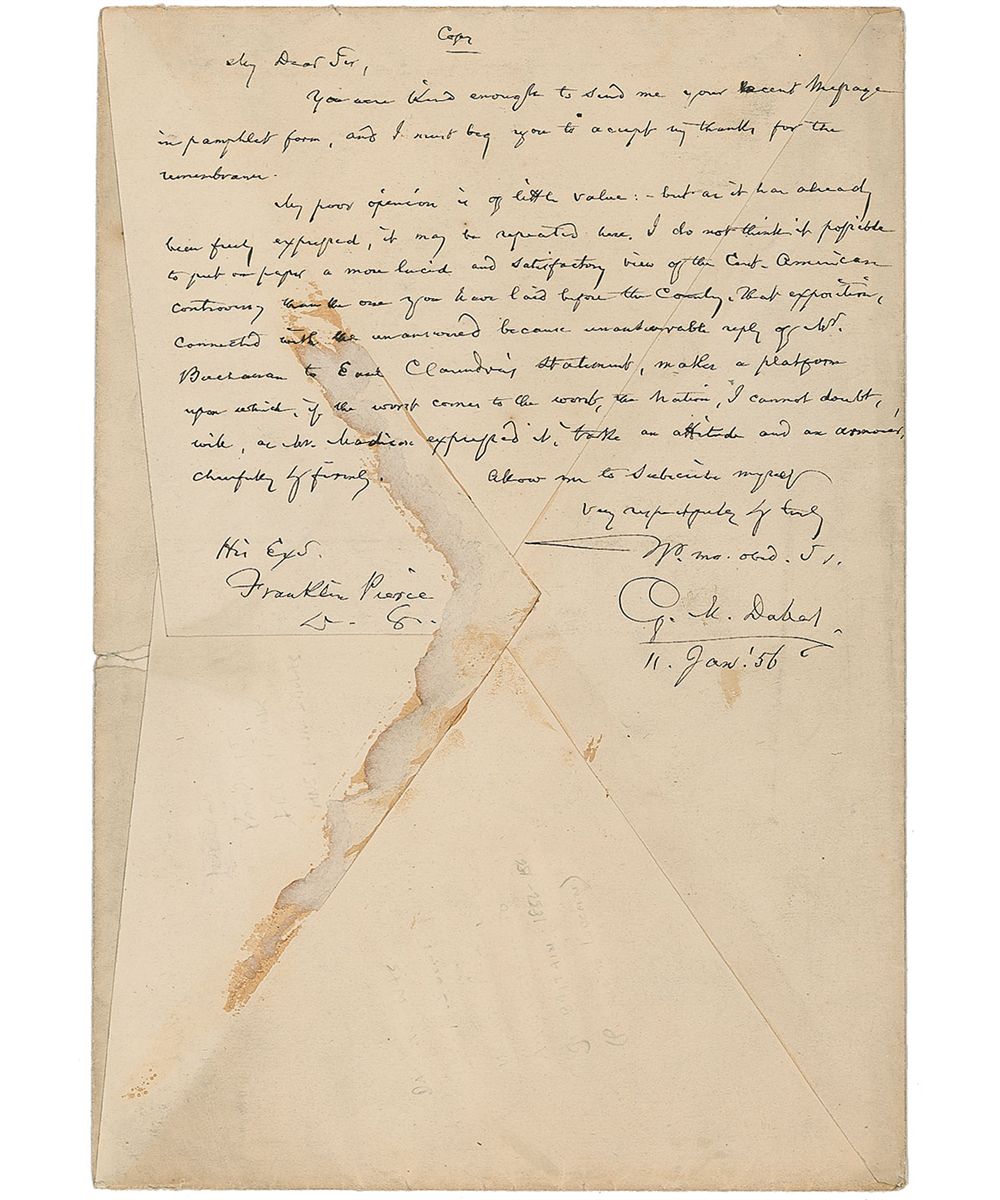 Copy
My Dear Sir,
You were kind enough to send me your recent Message
in pamphlet form, and I must beg you to accept my thanks for the
remembrance.
My poor opinion is of little value: - but as it has already
been freely expressed, it may be repeated here. I do not think it possible
to put on paper a more lucid and satisfactory view of the Cent. American
controversy than the one you have laid before the Country. That exposition,
connected with the unanswered because unanswerable reply of Mr.
Buchanan to Earl Clarendon's statement, makes a platform
upon which, if the worst comes to the worst, the Nation, I cannot doubt,
will, as Mr. Madison expressed it, take an attitude and an armour,
cheerfully & firmly.
Allow me to subscribe myself
Very respectfully & truly
Yr. mo. obed. St.
His Excy.
Franklin Pierce
G. M. Dallas
11. Jan'. 56